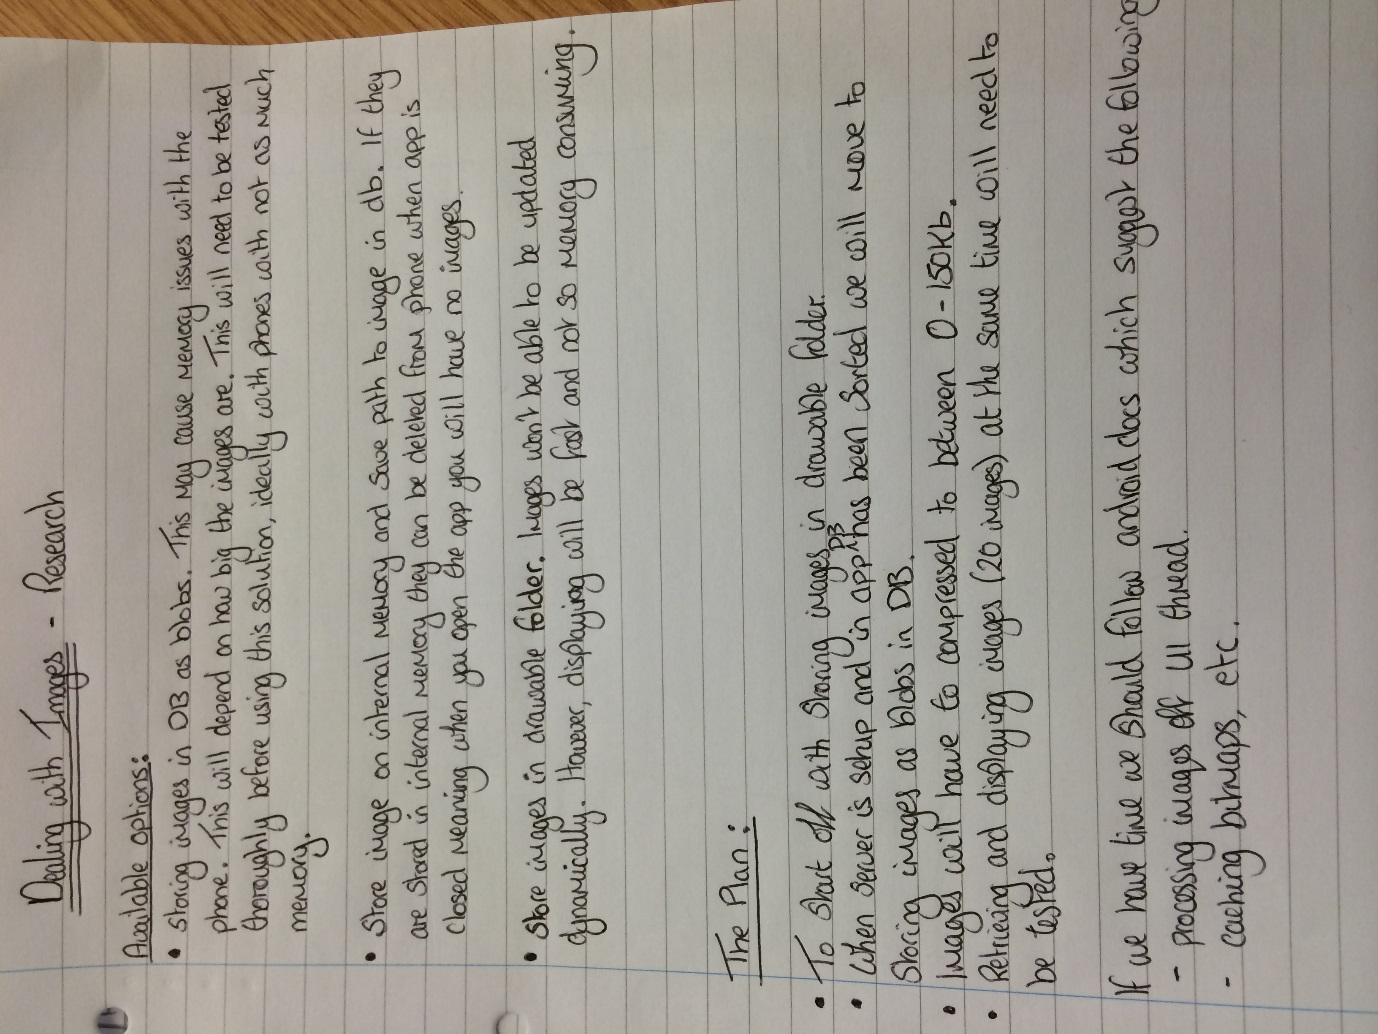 Dealing with Images - Research
Available options:
• Storing images in DB as blobs. This may cause memory issues with the
phone. This will depend on how big the images are. This will need to be tested
thoroughly before using this solution, ideally with phones with not as much
memory.
• Store image on internal memory and save path to image in db. If they
are stored in internal memory they can be deleted from phone when app is
closed meaning when you open the app you will have no images.
• Store images in drawable folder. Images won't be able to be updated
dynamically. However, displaying will be fast and not so memory consuming.
The Plan:
• To start off with storing images in drawable folder.
• When server is setup and in app DB has been sorted we will move to
storing images as blobs in DB.
• Images will have to compressed to between 0-150Kb.
• Retrieving and displaying images (20 images) at the same time will need to
be tested.
If we have time we should follow android docs which suggest the following
- processing images off UI thread.
- caching bitmaps, etc.